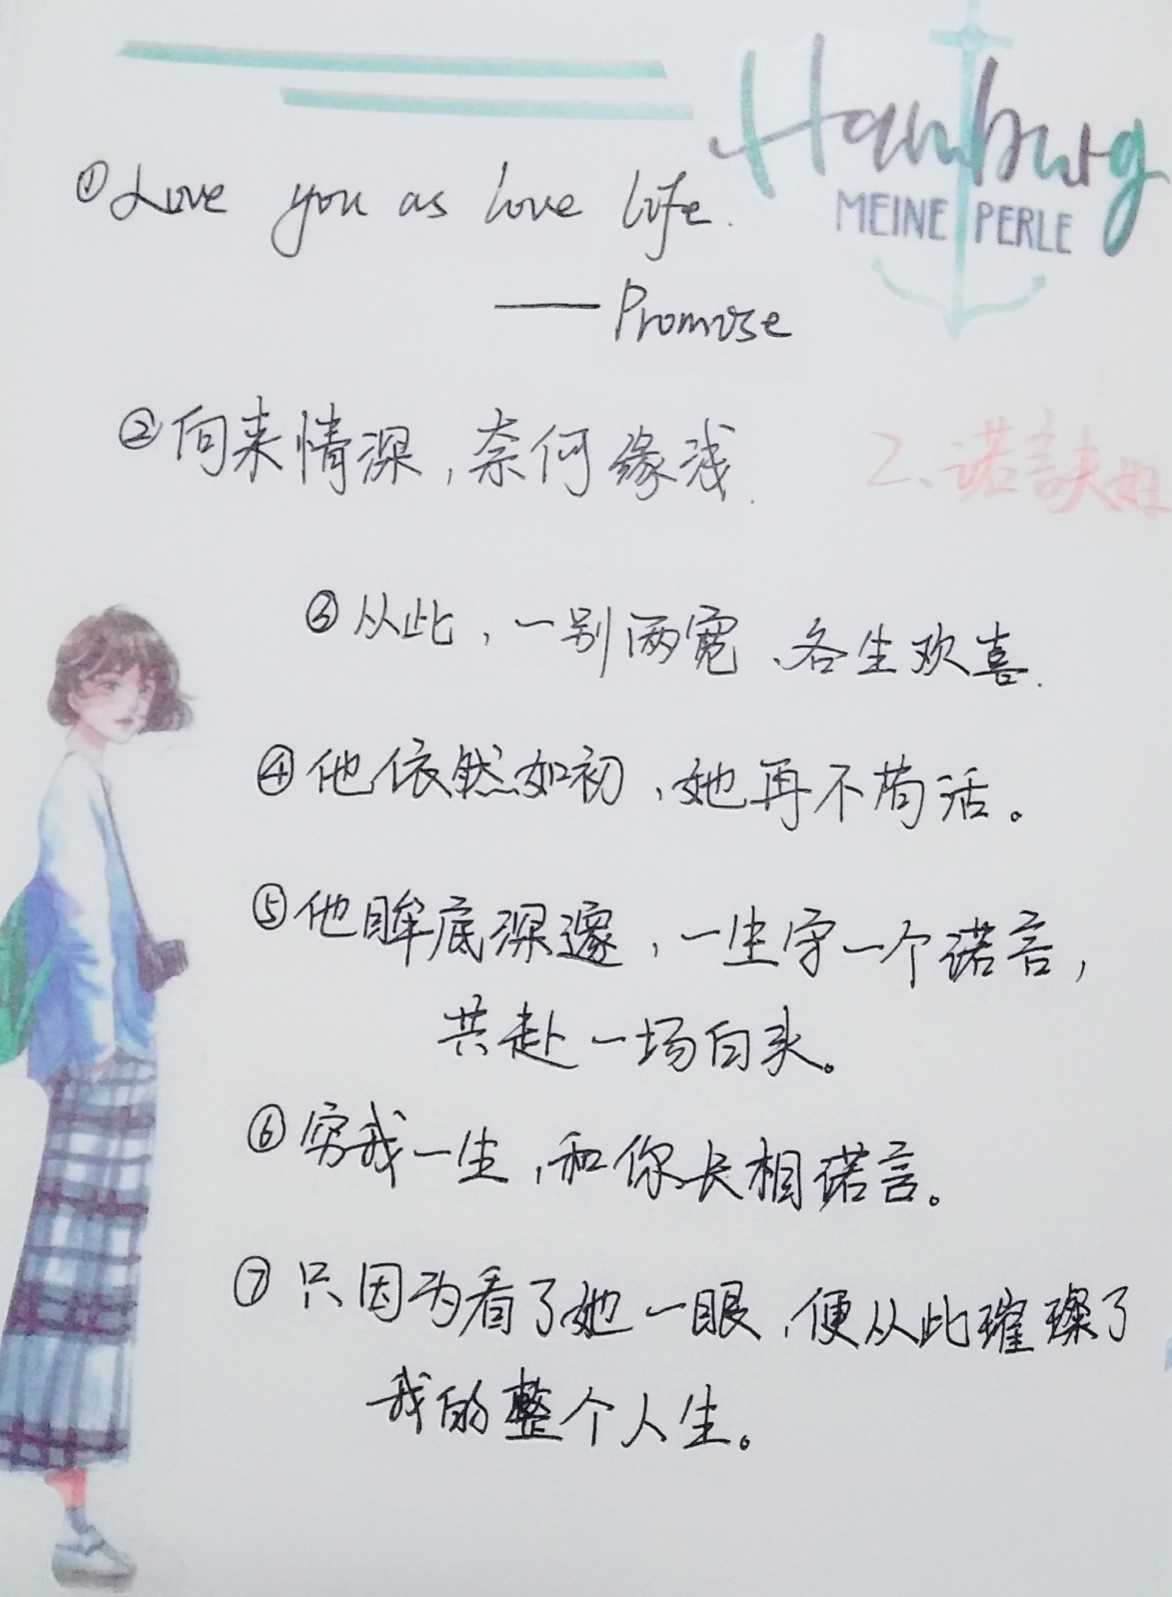 Hamburg
MEINE PERLE
①Love you as love life.
——Promise
②向来情深，奈何缘浅.
2、诺言
③从此，一别两宽、各生欢喜.
④他依然如初，她再不苟活。
⑤他眸底深邃，一生守一个诺言，
共赴一场白头。
⑥穷我一生，和你长相诺言。
⑦只因为看了她一眼，便从此璀璨了
我的整个人生。